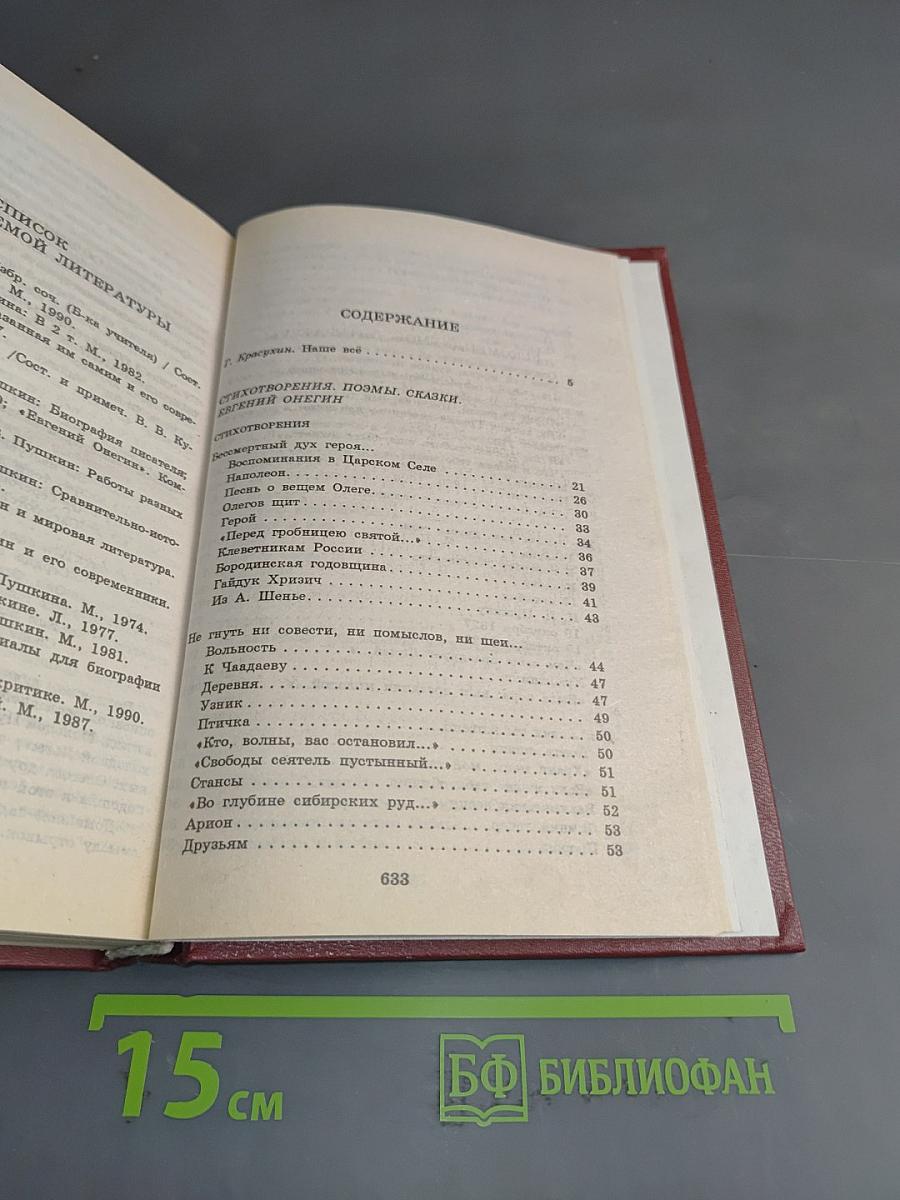 СПИСОК
ЕМОЙ ЛИТЕРАТУРЫ
збр. соч. (Б-ка учителя) / Сост.
М., 1990.
ина: В 2 т. М., 1982.
занная им самим и его совре-
/Сост. и примеч. В. В. Ку-
шкин: Биография писателя;
); «Евгений Онегин». Ком-
. Пушкин: Работы разных
шкин: Сравнительно-исто-
н и мировая литература.
ин и его современники.
Пушкина. М., 1974.
кине. Л., 1977.
шкин. М., 1981.
иалы для биографии
критике. М., 1990.
й. М., 1987.
СОДЕРЖАНИЕ
Г. Красухин. Наше всё . . . . . . . . . . . . . . . . . . . . 5
СТИХОТВОРЕНИЯ. ПОЭМЫ. СКАЗКИ.
ЕВГЕНИЙ ОНЕГИН
СТИХОТВОРЕНИЯ
Бессмертный дух героя...
Воспоминания в Царском Селе . . . . . . . . . . 21
Наполеон. . . . . . . . . . . . . . . . . . . . 26
Песнь о вещем Олеге. . . . . . . . . . . . . . . 30
Олегов щит . . . . . . . . . . . . . . . . . . . 33
Герой . . . . . . . . . . . . . . . . . . . . . 34
«Перед гробницею святой...» . . . . . . . . . . 36
Клеветникам России . . . . . . . . . . . . . . . 37
Бородинская годовщина. . . . . . . . . . . . . . 39
Гайдук Хризич . . . . . . . . . . . . . . . . . 41
Из А. Шенье. . . . . . . . . . . . . . . . . . . 43
Не гнуть ни совести, ни помыслов, ни шеи...
Вольность . . . . . . . . . . . . . . . . . . . 44
К Чаадаеву . . . . . . . . . . . . . . . . . . . 47
Деревня. . . . . . . . . . . . . . . . . . . . . 47
Узник . . . . . . . . . . . . . . . . . . . . . 49
Птичка . . . . . . . . . . . . . . . . . . . . . 50
«Кто, волны, вас остановил...» . . . . . . . . . 50
«Свободы сеятель пустынный...» . . . . . . . . . 51
Стансы . . . . . . . . . . . . . . . . . . . . . 51
«Во глубине сибирских руд...» . . . . . . . . . 52
Арион . . . . . . . . . . . . . . . . . . . . . 53
Друзьям . . . . . . . . . . . . . . . . . . . . 53
633
15 см
БФ БИБЛИОФАН